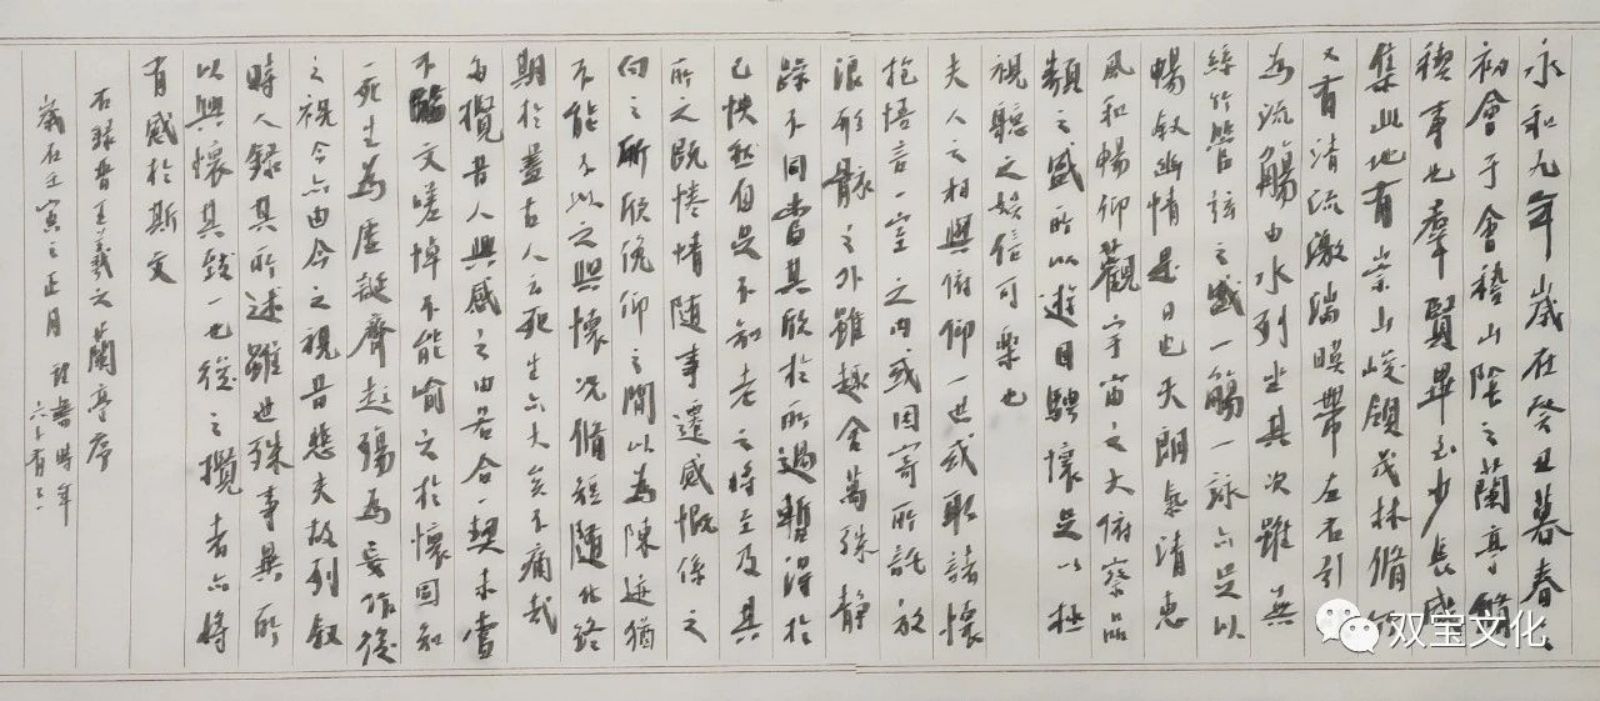 永和九年歲在癸丑暮春之
初會于會稽山陰之蘭亭脩
禊事也羣賢畢至少長咸
集此地有崇山峻領茂林脩竹
又有清流激湍暎帶左右引
為流觴曲水列坐其次雖無
絲竹管弦之盛一觴一詠亦足以
暢叙幽情是日也天朗氣清惠
風和暢仰觀宇宙之大俯察品
類之盛所以遊目騁懷足以極
視聽之娛信可樂也
夫人之相與俯仰一世或取諸懷
抱悟言一室之內或因寄所託放
浪形骸之外雖趣舍萬殊靜
躁不同當其欣於所遇暫得於
己怏然自足不知老之將至及其
所之既惓情隨事遷感慨係之
向之所欣俛仰之間以為陳迹猶
不能不以之興懷況脩短隨化終
期於盡古人云死生亦大矣不痛哉
每攬昔人興感之由若合一契未嘗
不臨文嗟悼不能喻之於懷固知
一死生為虛誕齊彭殤為妄作後
之視今亦由今之視昔悲夫故列叙
時人錄其所述雖世殊事異所
以興懷其致一也後之攬者亦將
有感於斯文
右録晉王羲之蘭亭序
歲在壬寅之正月
時年
六十有
双宝文化